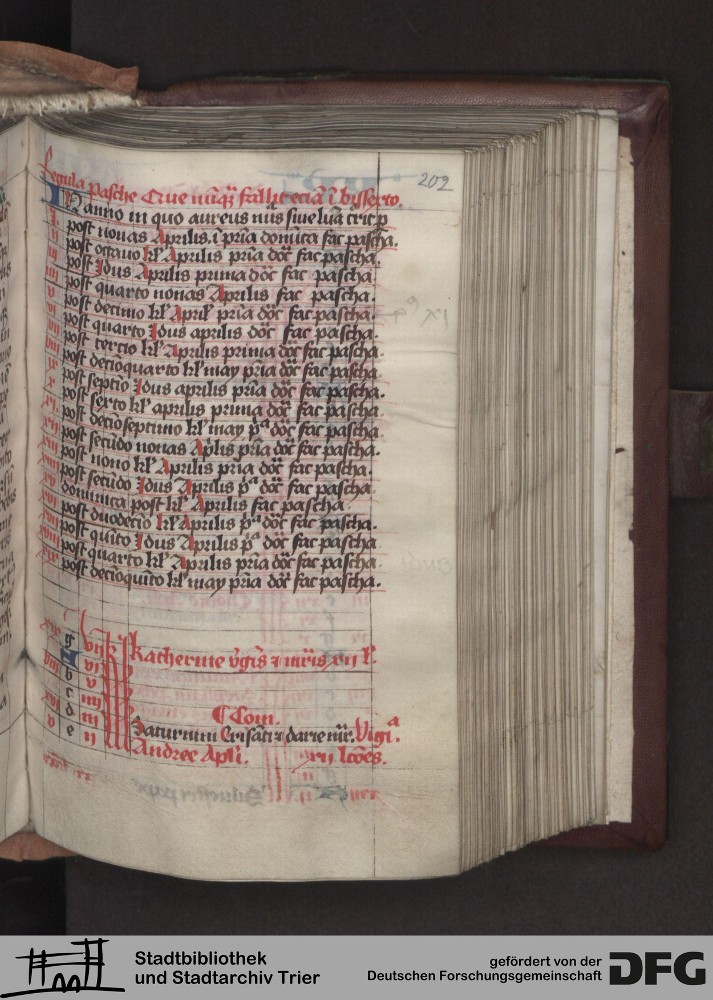 202
Regula pasche Que nūqȝ fallit eciā ī bisserto.
In anno in quo aureus nūs siue lūa
i post nonas Aprilis. ī pria domīca fac pascha.
ii post octauo kl' Aprilis pria doc̄ fac pascha.
iii post Idus Aprilis prima doc̄ fac pascha
iiii post quarto nonas Aprilis fac pascha.
v post decimo kl' April' pria doc̄ fac pascha.
vi post quarto Idus aprilis doc̄ fac pascha.
vii post tercio kl' Aprilis prima doc̄ fac pascha
viii post decioquarto kl' may pria doc̄ fac pascha.
ix post septīo Idus aprilis pria doc̄ fac pascha.
x post serto kl' aprilis prima doc̄ fac pascha.
xi post decioseptimo kl' may pª doc̄ fac pascha.
xii post secūdo nonas Aplis pria doc̄ fac pascha.
xiii post nono kl' Aprilis pria doc̄ fac pascha.
xiiii post secūdo Idus Aprilis pª doc̄ fac pascha.
xv dominica post kl' Aprilis fac pascha.
xvi post duodecio kl' Aprilis pª doc̄ fac pascha.
xvii post quīto Idus Aprilis pª doc̄ fac pascha.
xviii post quarto kl' Aprilis pria doc̄ fac pascha.
xix post decioquīto kl' may pria doc̄ fac pascha.
g vii kl' Katherine v̄gīs ⁊ mrīs xii l'.
A vi
viii b v
c iiii
xvi d iii Saturnini Crisāti ⁊ darie mr̄. Vigiª.
v e ii Andree Apli. xii lc̄oēs.
¶ Com.
Stadtbibliothek
und Stadtarchiv Trier
gefördert von der
Deutschen Forschungsgemeinschaft
DFG